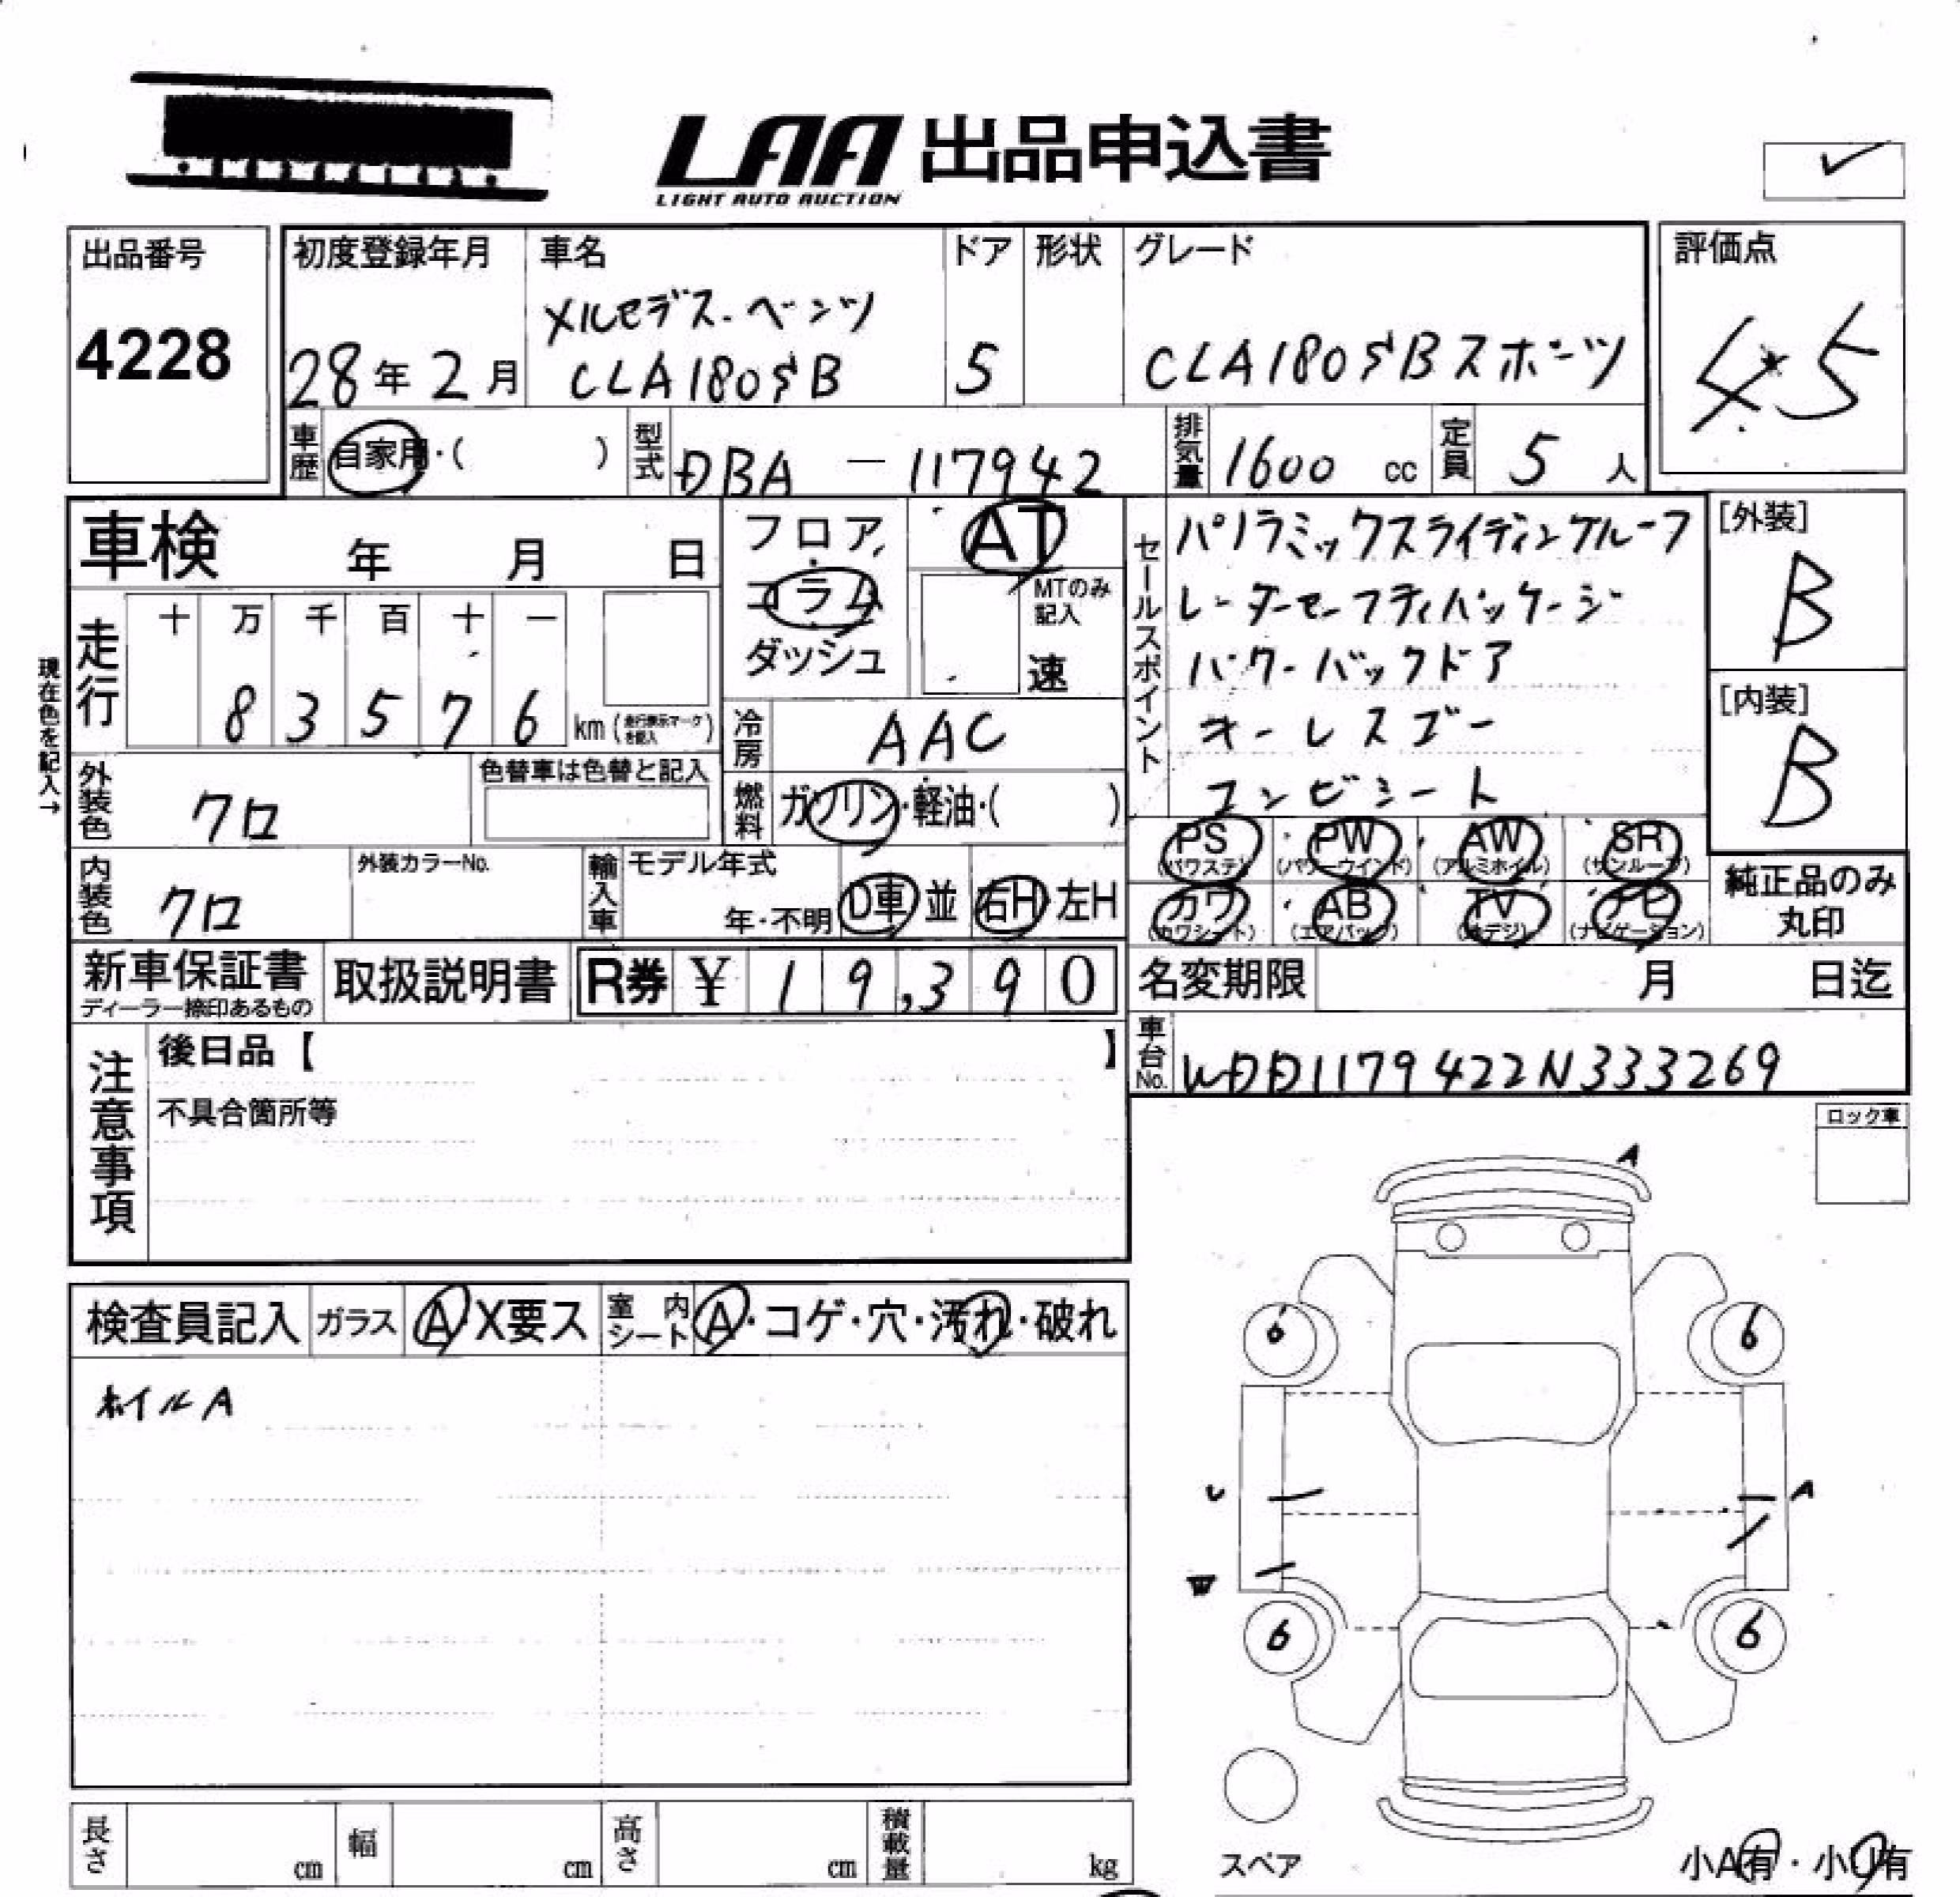 LAA 出品申込書
LIGHT AUTO AUCTION
出品番号
4228
初度登録年月
28年2月
車名
メルセデス-ベンツ
CLA180SB
ドア
5
形状
グレード
CLA180SBスポーツ
評価点
4.5
車歴
自家用・( )
型式
DBA — 117942
排気量
1600 cc
定員
5 人
車検 年 月 日
フロア・
コラム
ダッシュ
AT
MTのみ
記入
速
セールスポイント
パノラミックスライディングルーフ
レーダーセーフティパッケージ
パワーバックドア
キーレスゴー
コンビシート
[外装]
B
[内装]
B
現在色を記入→
走行
十 万 千 百 十 一
8 3 5 7 6 km (走行表示マークを記入)
冷房
AAC
外装色
クロ
色替車は色替と記入
燃料
ガソリン・軽油・( )
PS PW AW SR
(パワステ) (パワーウインド) (アルミホイル) (サンルーフ)
カワ AB TV ナビ
(カワシート) (エアバック) (地デジ) (ナビゲーション)
純正品のみ
丸印
内装色
クロ
外装カラーNo.
輸入車
モデル年式
年・不明
D車 並 右H 左H
新車保証書
ディーラー捺印あるもの
取扱説明書
R券 ¥ 19,390
名変期限 月 日迄
車台No.
WDD1179422N333269
注意事項
後日品【 】
不具合箇所等
ロック車
検査員記入 ガラス A X要ス 室内シート A・コゲ・穴・汚れ・破れ
ホイルA
A
6 6
U A
W
6 6
スペア
小A有・小U有
長さ cm 幅 cm 高さ cm 積載量 kg